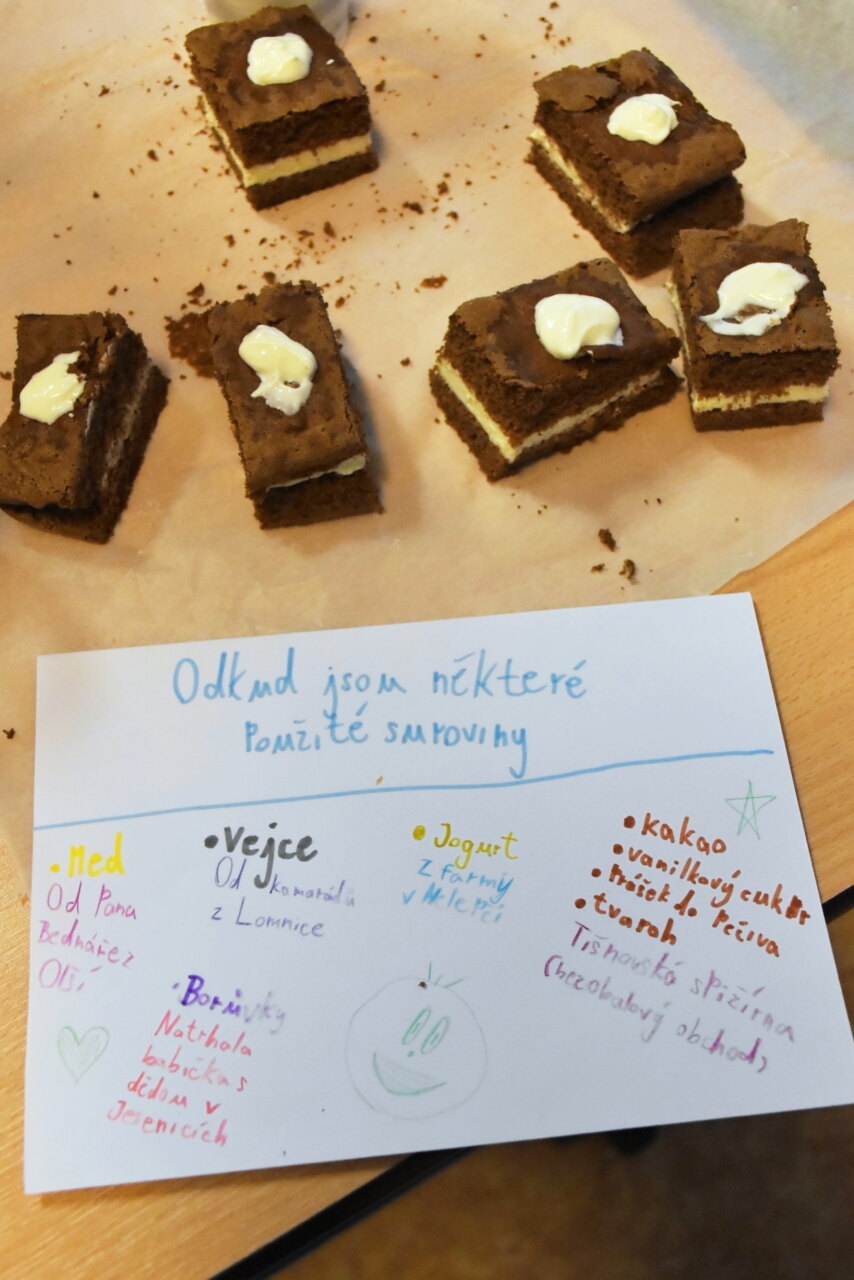 Odkud jsou některé
Použité suroviny
•Med
Od Pana
Bednáře z
Olší
•Vejce
Od kamarádů
z Lomnice
•Jogurt
z farmy
v Nelepčí
•kakao
•vanilkový cukr
•Prášek do Pečiva
•tvaroh
Tišnovská spižírna
(bezobalový obchod)
•Borůvky
Natrhala
babička s
dědou v
Jesenicích